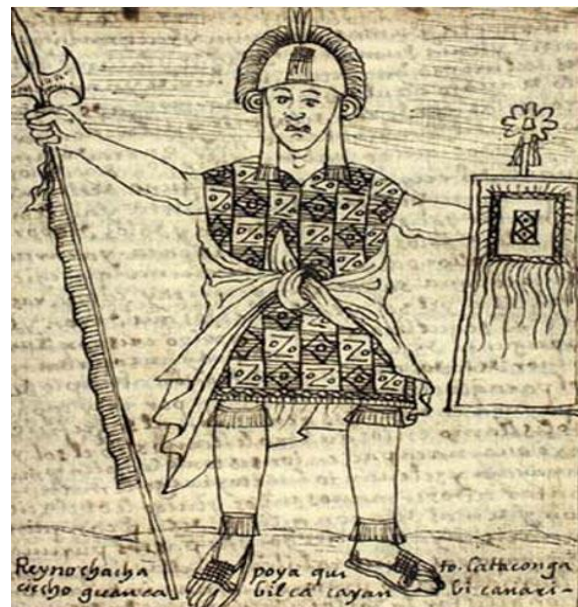 Reyno chacha poya qui to. Lataconga
cicho guanca bilca cayan bi canari-